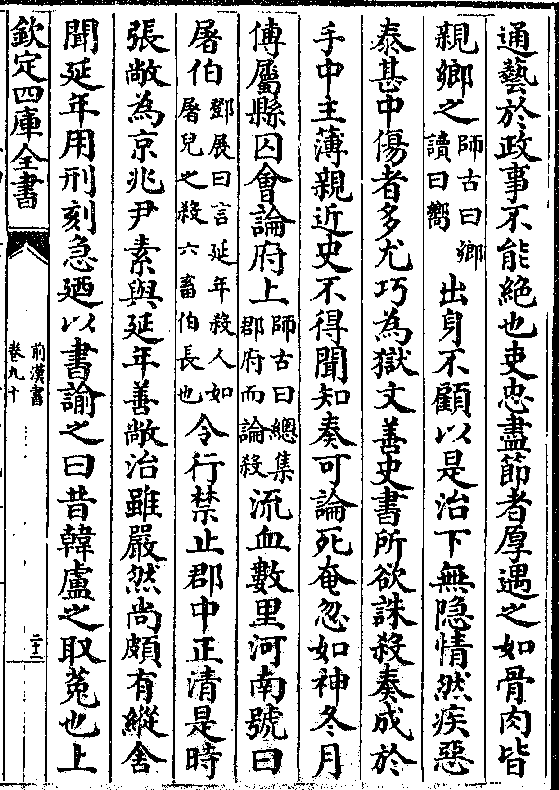 通藝於政事不能絶也吏忠盡節者厚遇之如骨肉皆
親鄉之師古曰鄉讀曰嚮出身不顧以是治下無隐情然疾惡
泰甚中傷者多尤巧為獄文善史書所欲誅殺奏成於
手中主薄親近史不得聞知奏可論死奄忽如神冬月
傳屬縣囚會論府上師古曰總集郡府而論殺流血數里河南號曰
屠伯鄧展曰言延年殺人如屠兒之殺六畜伯長也令行禁止郡中正清是時
張敞為京兆尹素與延年善敞治雖嚴然尚頗有縱舍
聞延年用刑刻急廼以書諭之曰昔韓盧之取菟也上
欽定四庫全書
前漢書
卷九十
二十二